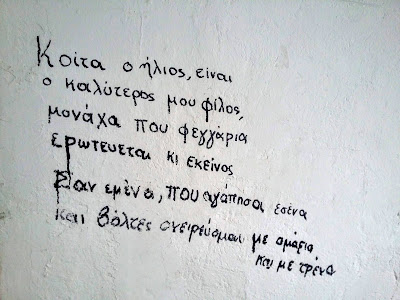 Κοίτα ο ήλιος, είναι
ο καλύτερος μου φίλος,
μονάχα που φεγγάρια
ερωτεύεται κι εκείνος
Σαν εμένα, που αγάπησα εσένα
και βόλτες ονειρεύομαι με αμάξια
και με τρένα